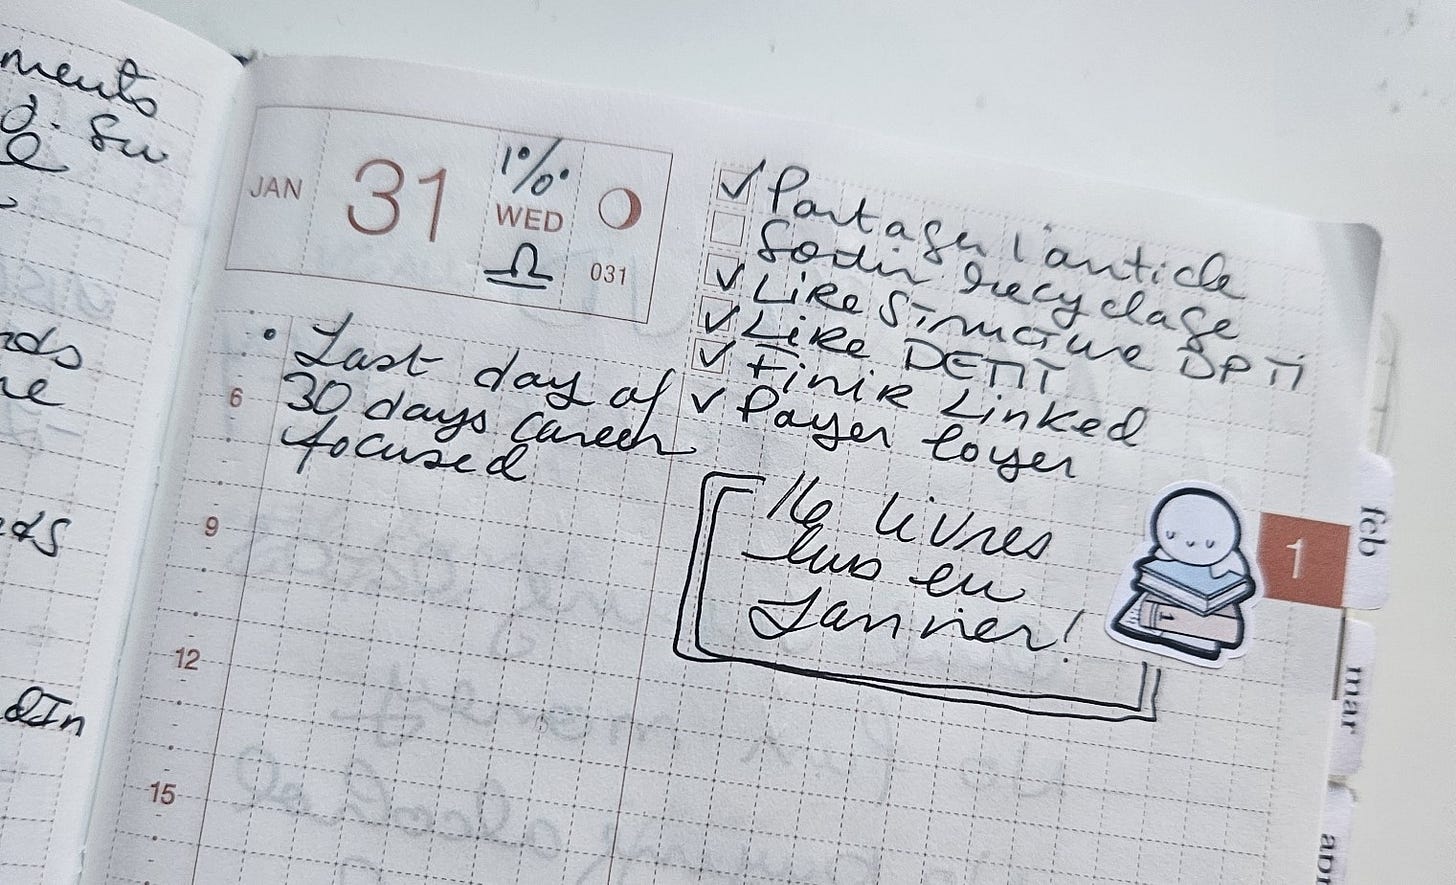 ments
JAN 31 1% WED ♎ 031
✓ Partager l'article
Sortir recyclage
✓ Like Structure DPTI
✓ Like DETIT
✓ Finir Linked
✓ Payer loyer
• Last day of
30 days career
focused
16 livres
lus en
Janvier!
6
9
12
15
1
feb
mar
apr